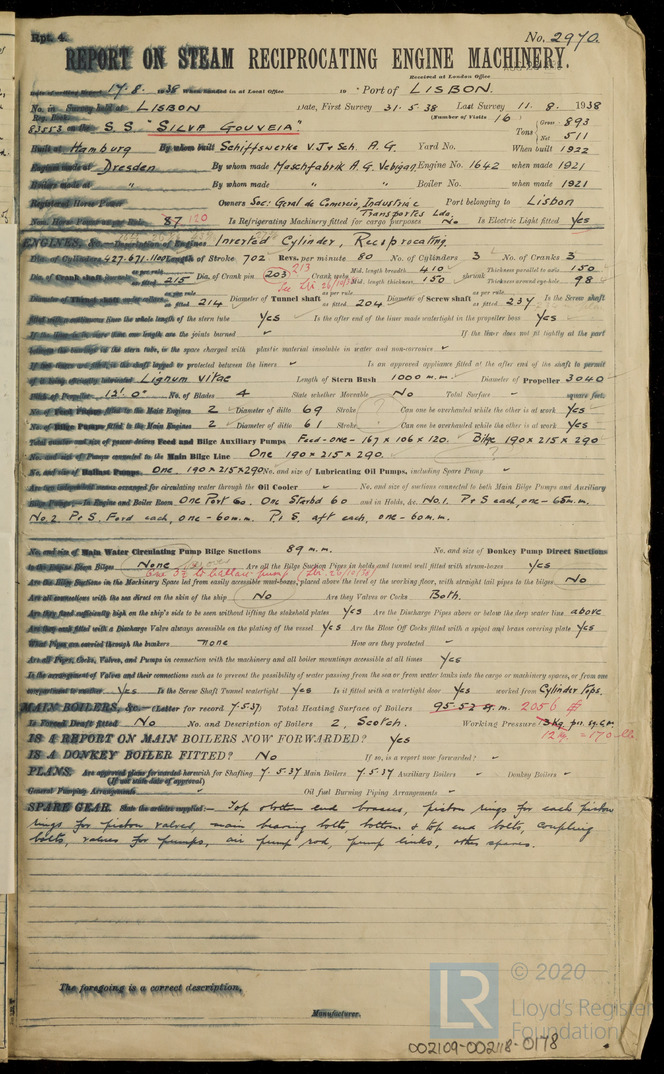 Rpt. 4.
No. 2970.
REPORT ON STEAM RECIPROCATING ENGINE MACHINERY.
Received at London Office
Date of writing Report 17.8.1938 When handed in at Local Office 19 Port of LISBON.
No. in Survey held at LISBON Date, First Survey 31.5.38 Last Survey 11.8.1938
Reg. Book. (Number of Visits 16)
83553 on the S.S. "SILVA GOUVEIA" Tons Gross 893
Net 511
Built at Hamburg By whom built Schiffswerke v.J.+Sch. A.G. Yard No. When built 1922
Engines made at Dresden By whom made Maschfabrik A.G. Engine No. 1642 when made 1921
Boilers made at " By whom made " " Boiler No. when made 1921
Registered Horse Power Owners Soc: Geral de Comercio, Industria e Transportes Lda. Port belonging to Lisbon
Nom. Horse Power as per Rule 87 120 Is Refrigerating Machinery fitted for cargo purposes No Is Electric Light fitted Yes
ENGINES, &c.—Description of Engines Inverted Cylinder, Reciprocating.
Dia. of Cylinders 427.671.1100 Length of Stroke 702 Revs. per minute 80 No. of Cylinders 3 No. of Cranks 3
Dia. of Crank shaft journals as per rule as fitted 215 Dia. of Crank pin 203 213 Crank webs Mid. length breadth 410 Mid. length thickness 150 shrunk Thickness parallel to axis 150 Thickness around eye-hole 98
See Ltr 26/10/38
Diameter of Thrust shaft under collars as per rule as fitted 214 Diameter of Tunnel shaft as per rule as fitted 204 Diameter of Screw shaft as per rule as fitted 237 Is the Screw shaft
fitted with a continuous liner the whole length of the stern tube Yes Is the after end of the liner made watertight in the propeller boss Yes
If the liner is in more than one length are the joints burned If the liner does not fit tightly at the part
between the bearings in the stern tube, is the space charged with plastic material insoluble in water and non-corrosive
If two liners are fitted, is the shaft lapped or protected between the liners Is an approved appliance fitted at the after end of the shaft to permit
of it being efficiently lubricated Lignum vitae Length of Stern Bush 1000 m.m. Diameter of Propeller 3040
Pitch of Propeller 12' 0" No. of Blades 4 State whether Moveable No Total Surface square feet.
No. of Feed Pumps fitted to the Main Engines 2 Diameter of ditto 69 Stroke ? Can one be overhauled while the other is at work Yes
No. of Bilge Pumps fitted to the Main Engines 2 Diameter of ditto 61 Stroke Can one be overhauled while the other is at work Yes
Total number and size of power driven Feed and Bilge Auxiliary Pumps Feed-one-167 x 106 x 120. Bilge 190 x 215 x 290
No. and size of Pumps connected to the Main Bilge Line One 190 x 215 x 290. ?
No. and size of Ballast Pumps One 190x215x290 No. and size of Lubricating Oil Pumps, including Spare Pump
Are two independent means arranged for circulating water through the Oil Cooler No. and size of suctions connected to both Main Bilge Pumps and Auxiliary
Bilge Pumps;—In Engine and Boiler Room One Port 60. One Starbd 60 and in Holds, &c. No.1. P & S each, one-65m.m.
No 2. P & S. Ford each, one-60m.m. P & S. aft each, one-60m.m.
No. and size of Main Water Circulating Pump Bilge Suctions 89 m.m. No. and size of Donkey Pump Direct Suctions
to the Engine Room Bilges None Are all the Bilge Suction Pipes in holds and tunnel well fitted with strum-boxes Yes
One 3½ to ballast pump (Ltr. 26/10/38)
Are the Bilge Suctions in the Machinery Space led from easily accessible mud-boxes, placed above the level of the working floor, with straight tail pipes to the bilges No
Are all connections with the sea direct on the skin of the ship No Are they Valves or Cocks Both.
Are they fixed sufficiently high on the ship's side to be seen without lifting the stokehold plates Yes Are the Discharge Pipes above or below the deep water line above
Are they each fitted with a Discharge Valve always accessible on the plating of the vessel Yes Are the Blow Off Cocks fitted with a spigot and brass covering plate Yes
What Pipes are carried through the bunkers none How are they protected
Are all Pipes, Cocks, Valves, and Pumps in connection with the machinery and all boiler mountings accessible at all times Yes
Is the arrangement of Valves and their connections such as to prevent the possibility of water passing from the sea or from water tanks into the cargo or machinery spaces, or from one
compartment to another Yes Is the Screw Shaft Tunnel watertight Yes Is it fitted with a watertight door Yes worked from Cylinder Tops.
MAIN BOILERS, &c.—(Letter for record 7.5.37) Total Heating Surface of Boilers 95.53 sq. m. 2056
Is Forced Draft fitted No No. and Description of Boilers 2, Scotch. Working Pressure 13 Kg. per sq. c.m.
12 Kg. = 170 lb.
IS A REPORT ON MAIN BOILERS NOW FORWARDED? Yes
IS A DONKEY BOILER FITTED? No If so, is a report now forwarded?
PLANS. Are approved plans forwarded herewith for Shafting 7.5.37 Main Boilers 7.5.37 Auxiliary Boilers Donkey Boilers
(If not state date of approval)
General Pumping Arrangements Oil fuel Burning Piping Arrangements
SPARE GEAR. State the articles supplied:— Top & bottom end brasses, piston rings for each piston
rings for piston valves, main bearing bolts, bottom & top end bolts, coupling
bolts, valves for pumps, air pump rod, pump links, other spares.
The foregoing is a correct description,
Manufacturer.
LR © 2020
Lloyd's Register
Foundation
002109-002118-0178